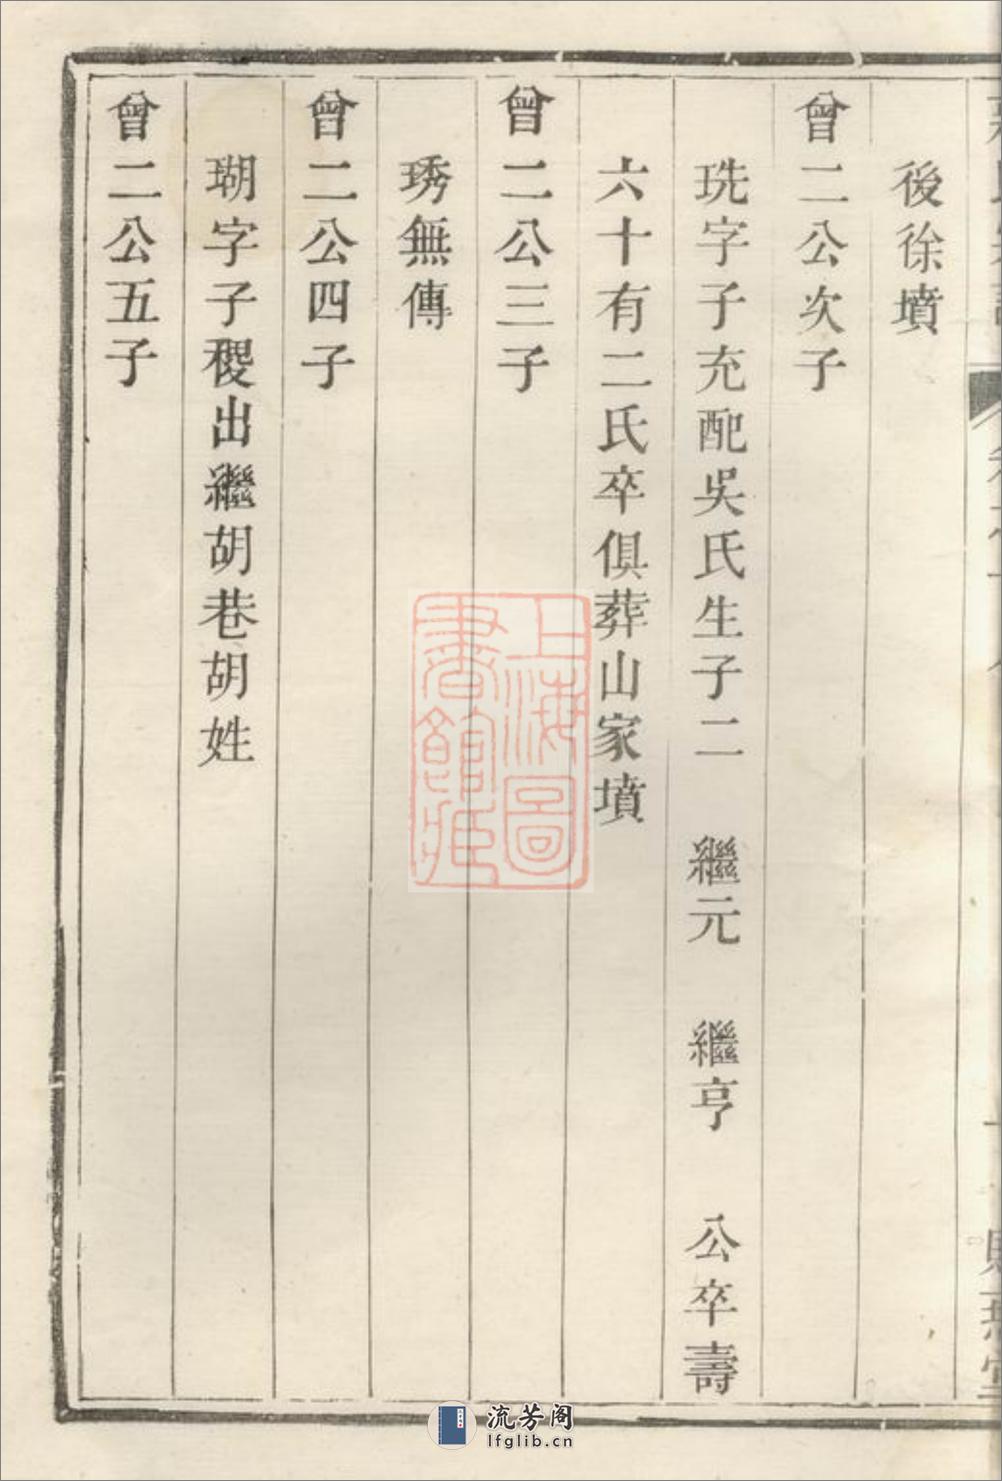 後徐墳
曾二公次子
珗字子充配吳氏生子二 繼元 繼亨 公卒壽
六十有二氏卒俱葬山家墳
曾二公三子
琇無傳
曾二公四子
瑚字子稷出繼胡巷胡姓
曾二公五子
上海圖書館藏
流芳阁
lfglib.cn